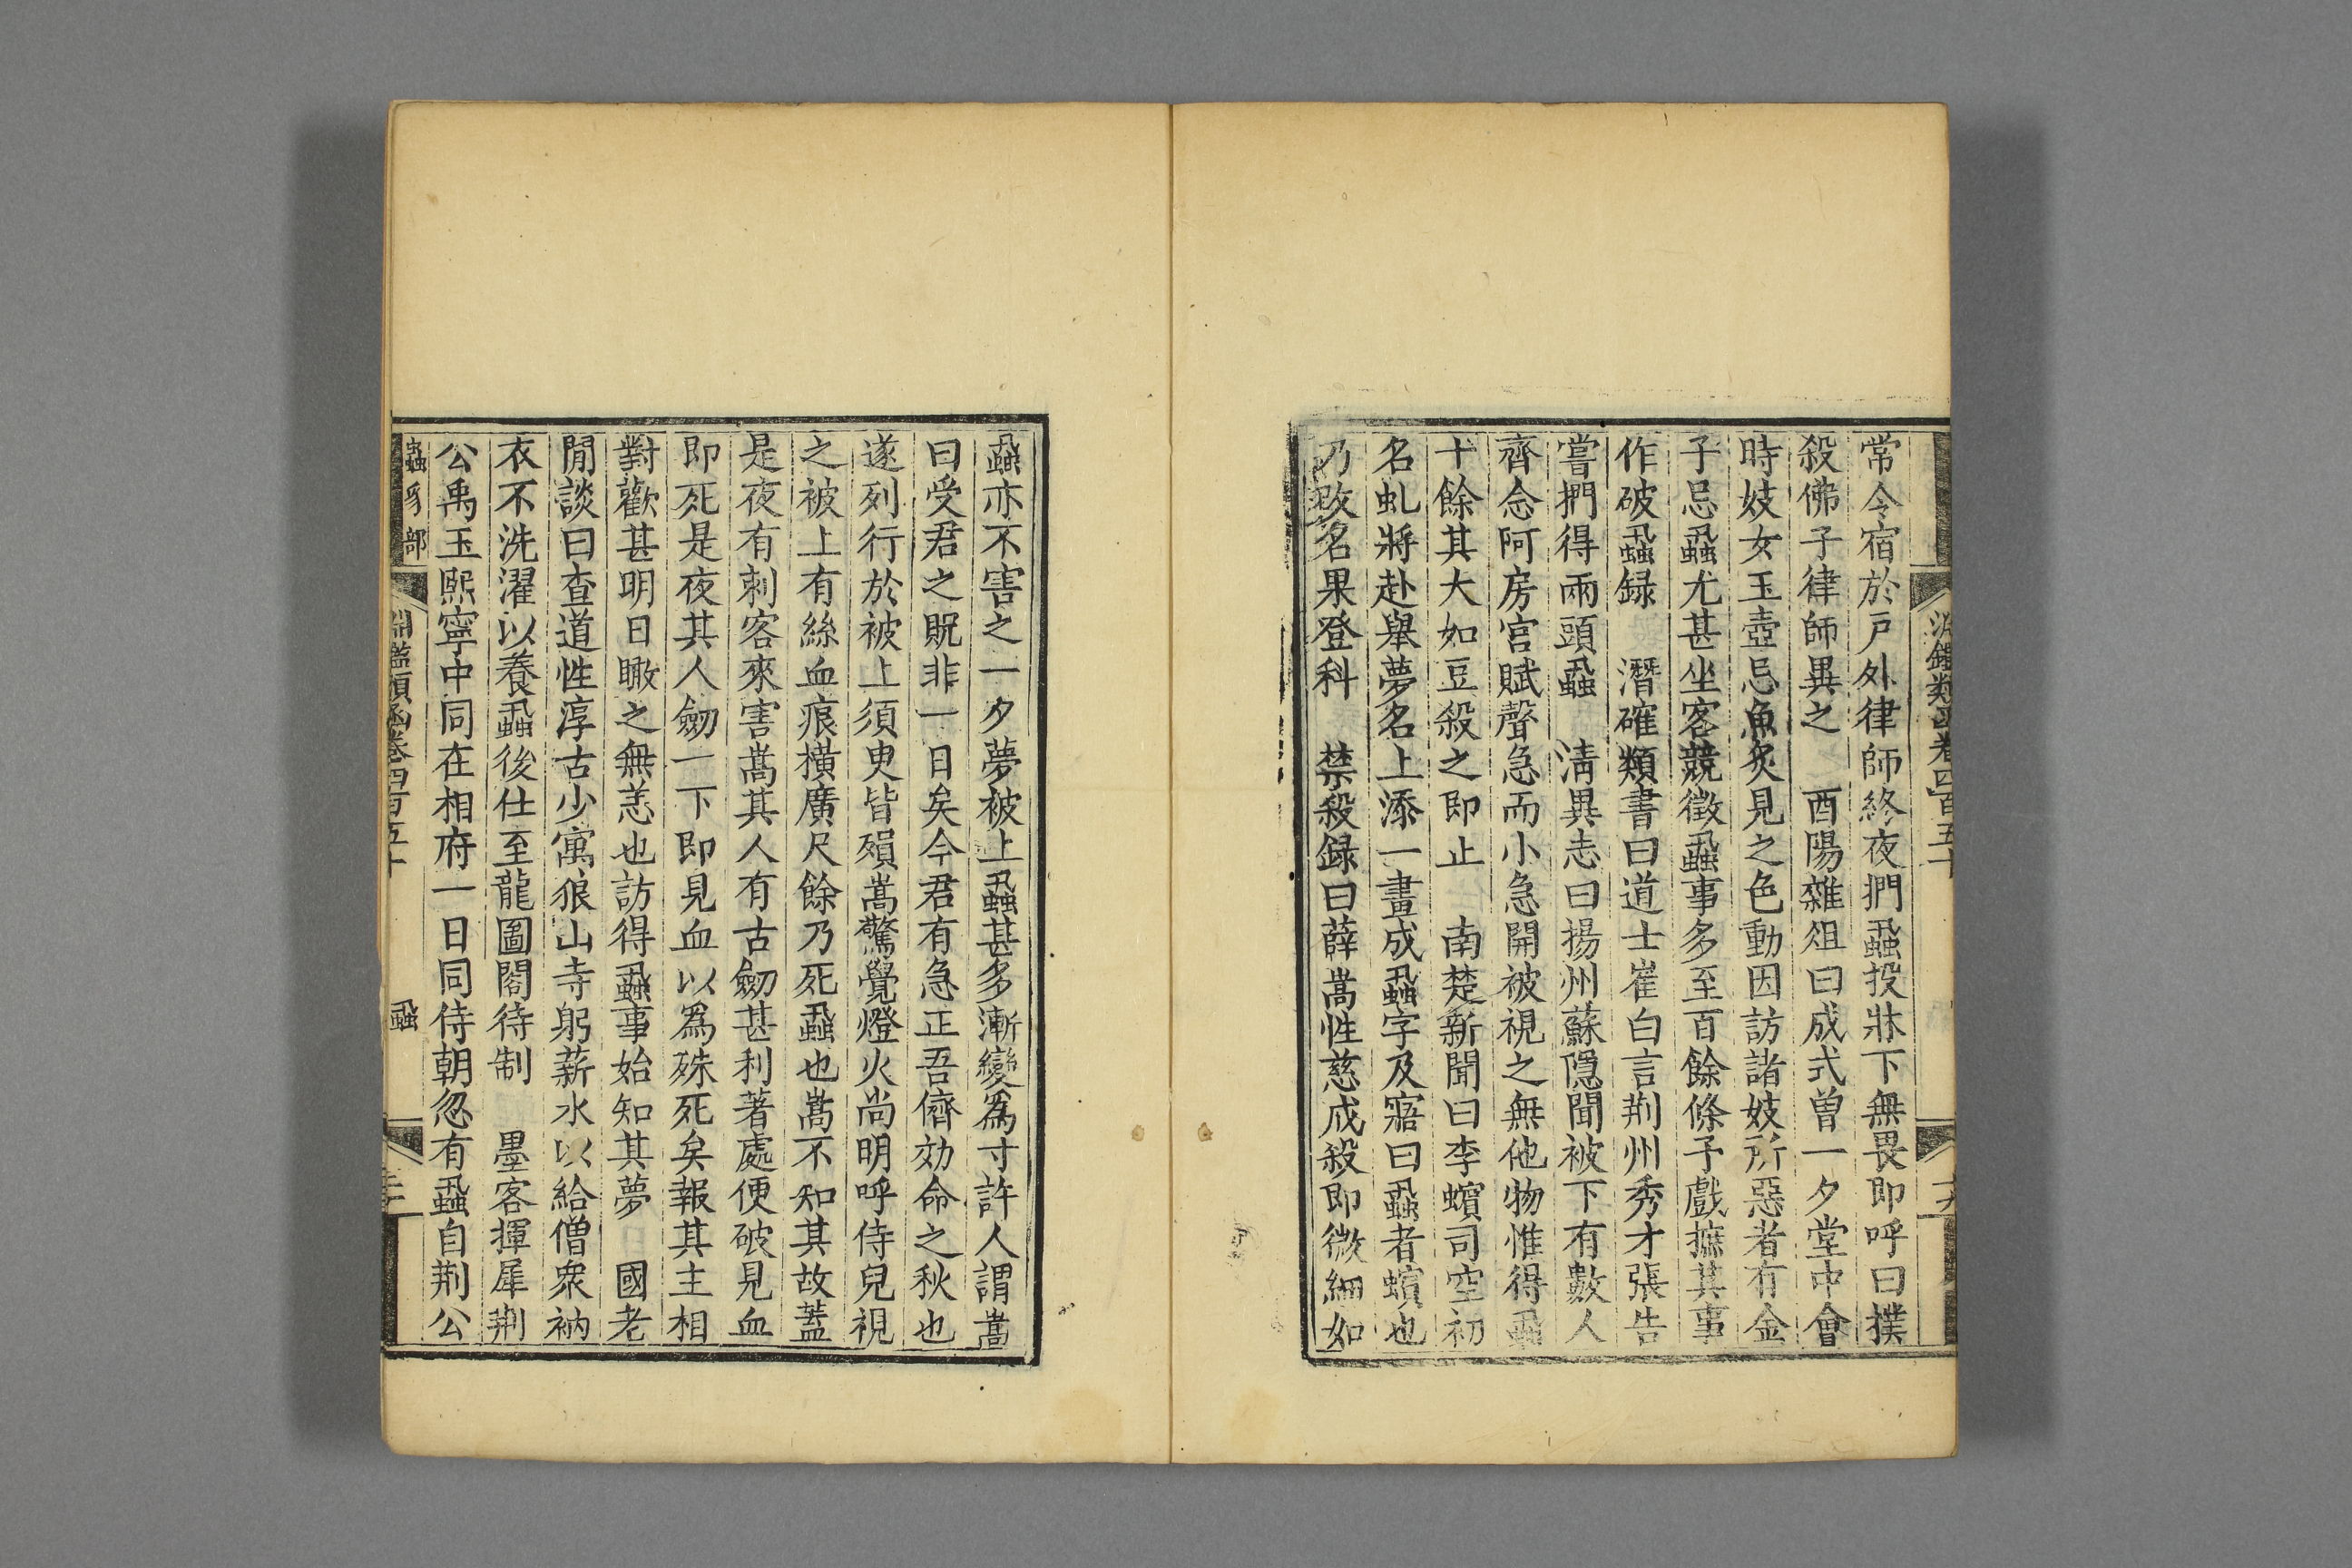 淵鑑類函卷四百五十
十九
常令宿於戸外律師終夜捫蝨投牀下無畏即呼曰撲
殺佛子律師異之　酉陽雜俎曰成式曽一夕堂中會
時妓女玉壺忌魚炙見之色動因訪諸妓所惡者有金
子忌蝨尤甚坐客競徵蝨事多至百餘條予戲摭其事
作破蝨録　潛確類書曰道士崔白言荆州秀才張告
嘗捫得兩頭蝨　清異志曰揚州蘇隱聞被下有數人
齊念阿房宮賦聲急而小急開被視之無他物惟得蝨
十餘其大如豆殺之即止　南楚新聞曰李蠙司空初
名虬將赴舉夢名上添一畫成蝨字及寤曰蝨者蠙也
乃改名果登科　禁殺録曰薛嵩性慈戒殺即微細如
蝨亦不害之一夕夢被上蝨甚多漸變爲寸許人謂嵩
曰受君之貺非一日矣今君有急正吾儕効命之秋也
遂列行於被上須臾皆殞嵩驚覺燈火尚明呼侍兒視
之被上有絲血痕橫廣尺餘乃死蝨也嵩不知其故蓋
是夜有刺客來害嵩其人有古劒甚利著處便破見血
即死是夜其人劒一下即見血以爲殊死矣報其主相
對歡甚明日瞰之無恙也訪得蝨事始知其夢　國老
閒談曰查道性淳古少寓狼山寺躬薪水以給僧衆衲
衣不洗濯以養蝨後仕至龍圖閣待制　墨客揮犀荆
公禹玉熙寧中同在相府一日同侍朝忽有蝨自荆公
蟲豸部
淵鑑類函卷四百五十
蝨